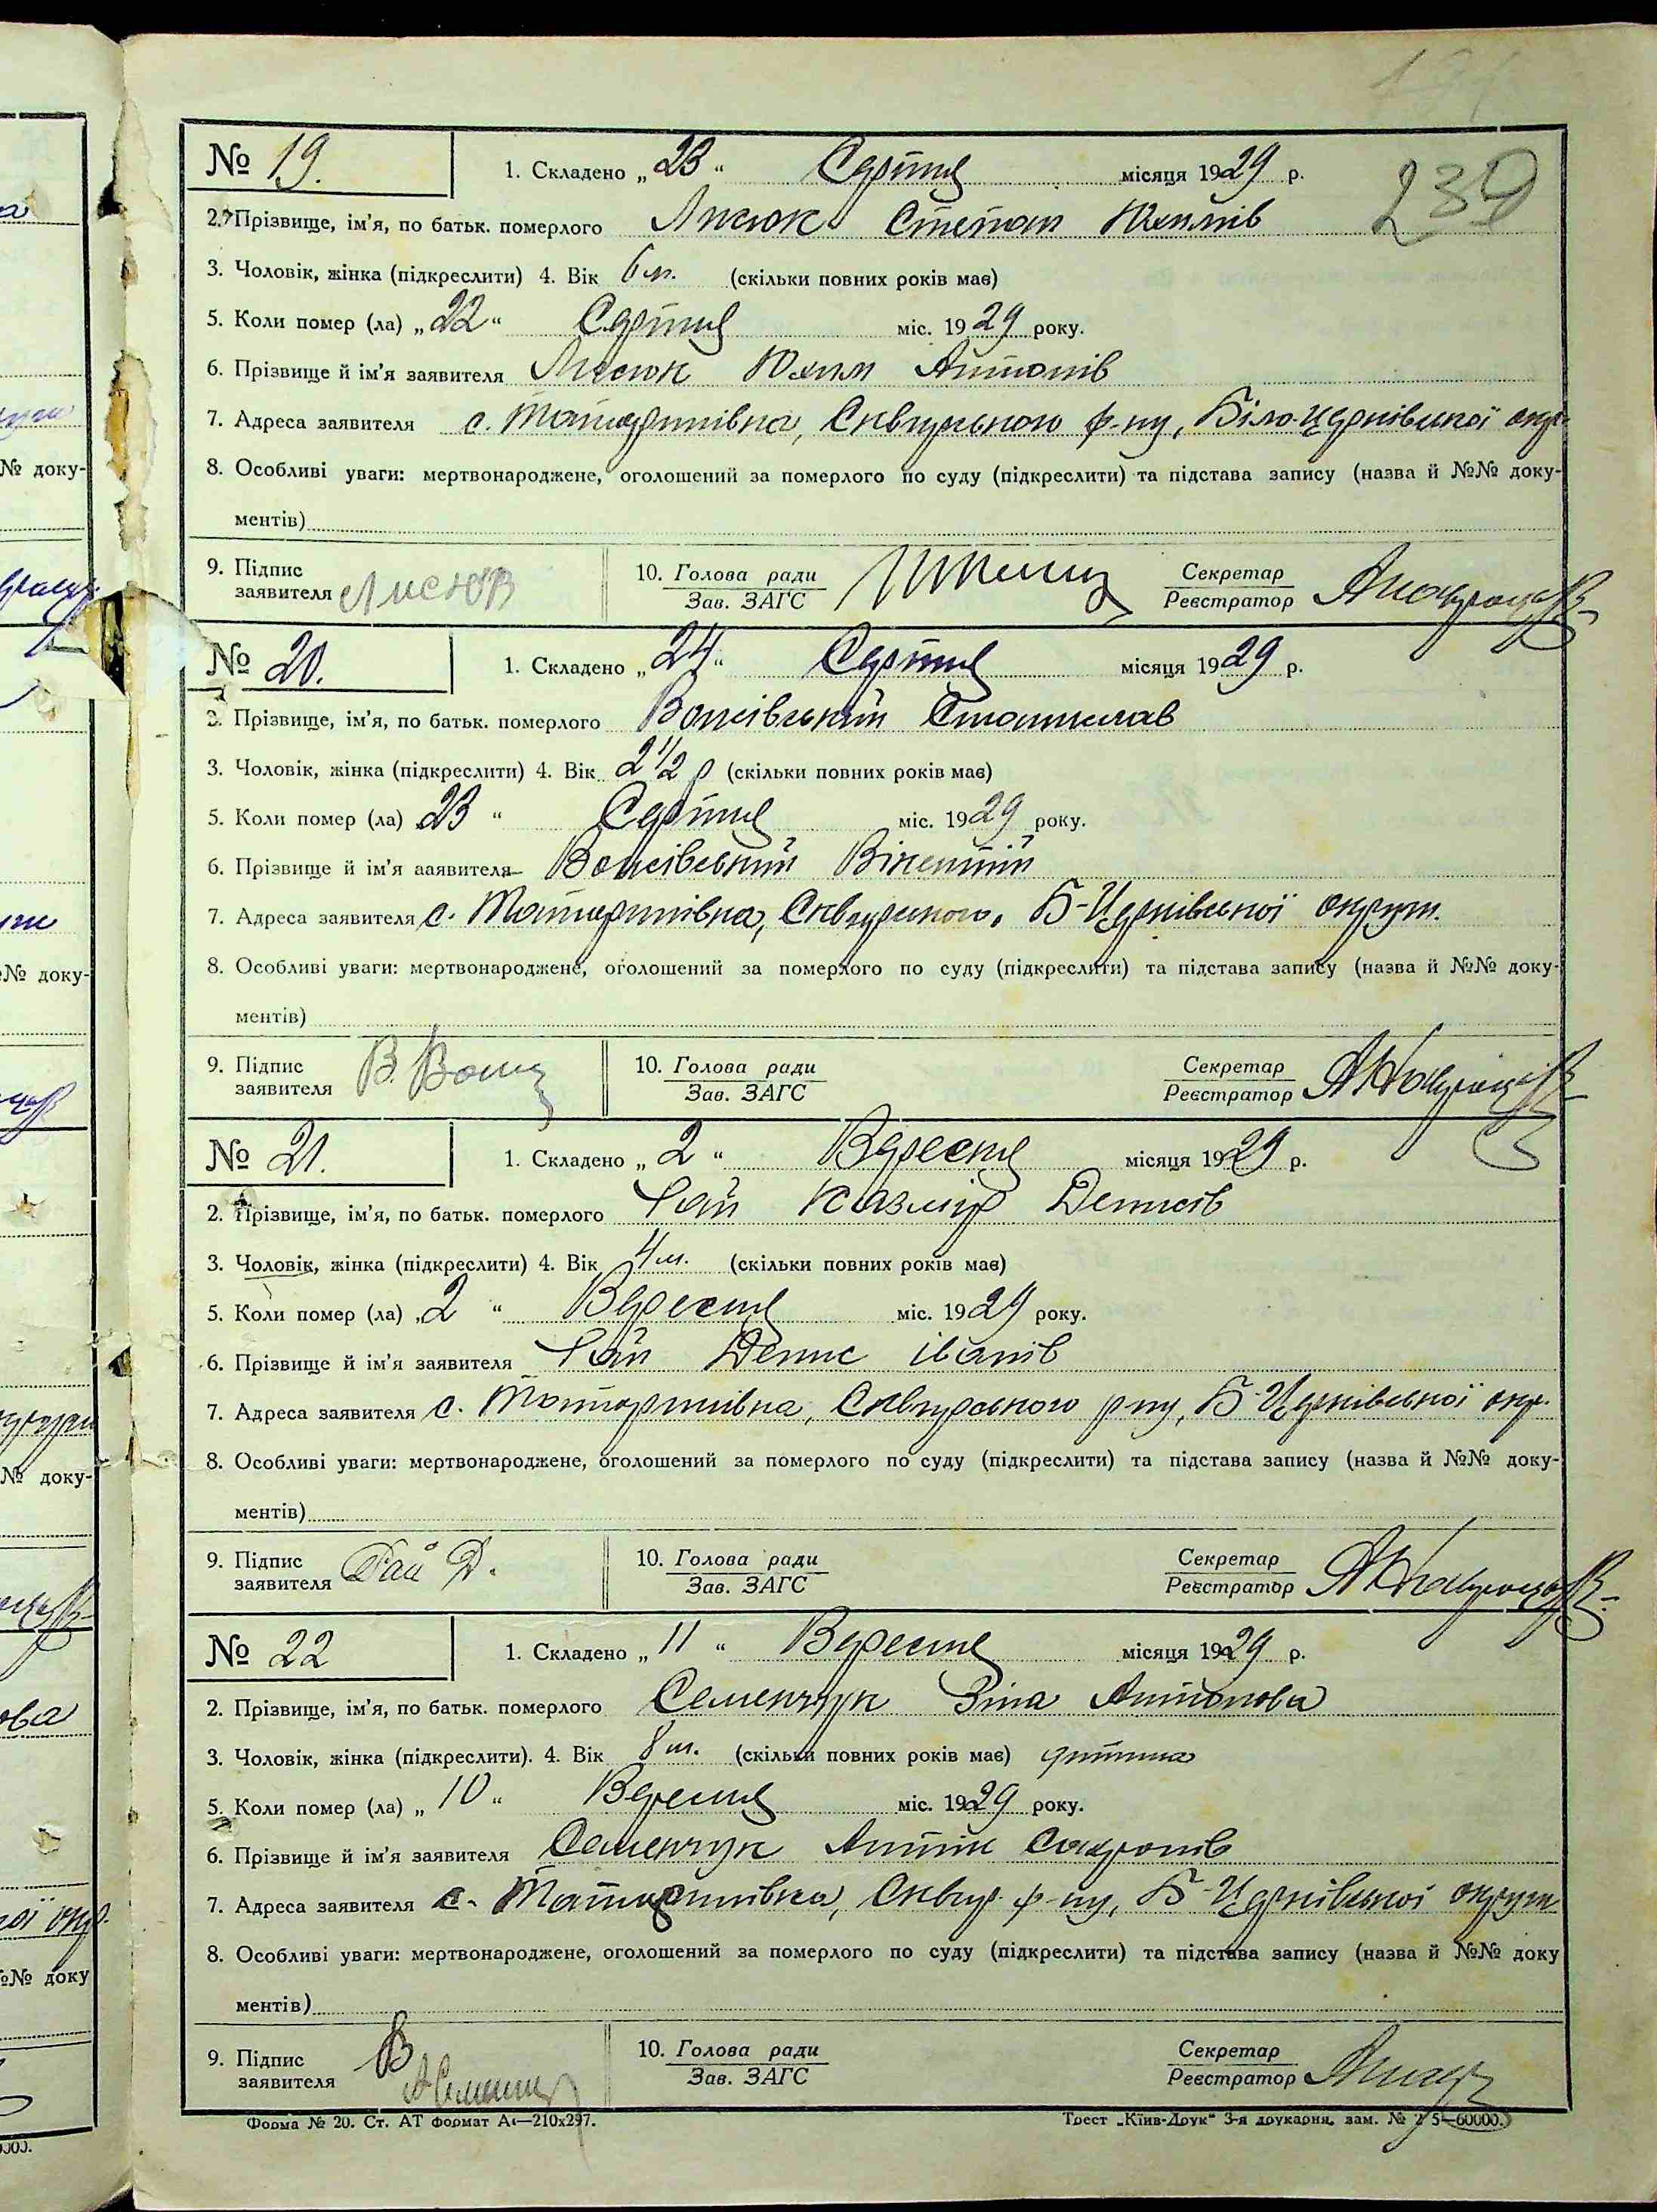 239
№ 19. 1. Складено „23“ Серпня місяця 1929 р.
2. Прізвище, ім'я, по батьк. померлого Лисюк Степан Юхимів
3. Чоловік, жінка (підкреслити) 4. Вік 6 м. (скільки повних років має)
5. Коли помер (ла) „22“ Серпня міс. 1929 року.
6. Прізвище й ім'я заявителя Лисюк Юхим Антонів
7. Адреса заявителя с. Татаринівка, Сквирського р-ну, Біло-Церківської окр.
8. Особливі уваги: мертвонароджене, оголошений за померлого по суду (підкреслити) та підстава запису (назва й №№ доку-
ментів)
9. Підпис заявителя Лисюк 10. Голова ради Секретар
Зав. ЗАГС Реєстратор
№ 20. 1. Складено „24“ Серпня місяця 1929 р.
2. Прізвище, ім'я, по батьк. померлого Станислав
3. Чоловік, жінка (підкреслити) 4. Вік 2 1/2 р (скільки повних років має)
5. Коли помер (ла) 23“ Серпня міс. 1929 року.
6. Прізвище й ім'я заявителя Вікентій
7. Адреса заявителя с. Татаринівка, Сквирського, Б-Церківської округи.
8. Особливі уваги: мертвонароджене, оголошений за померлого по суду (підкреслити) та підстава запису (назва й №№ доку-
ментів)
9. Підпис заявителя В. 10. Голова ради Секретар
Зав. ЗАГС Реєстратор
№ 21. 1. Складено „2“ Вересня місяця 1929 р.
2. Прізвище, ім'я, по батьк. померлого Гай Казмір Денисів
3. Чоловік, жінка (підкреслити) 4. Вік 4 м. (скільки повних років має)
5. Коли помер (ла) „2“ Вересня міс. 1929 року.
6. Прізвище й ім'я заявителя Гай Денис Іванів
7. Адреса заявителя с. Татаринівка, Сквирського р-ну, Б-Церківської окр.
8. Особливі уваги: мертвонароджене, оголошений за померлого по суду (підкреслити) та підстава запису (назва й №№ доку-
ментів)
9. Підпис заявителя Гай Д. 10. Голова ради Секретар
Зав. ЗАГС Реєстратор
№ 22 1. Складено „11“ Вересня місяця 1929 р.
2. Прізвище, ім'я, по батьк. померлого Семенчук Зіна Антонова
3. Чоловік, жінка (підкреслити). 4. Вік 8 м. (скільки повних років має) дитина
5. Коли помер (ла) „10“ Вересня міс. 1929 року.
6. Прізвище й ім'я заявителя Семенчук Антін
7. Адреса заявителя с. Татаринівка, Сквир. р-ну, Б-Церківської округи
8. Особливі уваги: мертвонароджене, оголошений за померлого по суду (підкреслити) та підстава запису (назва й №№ доку
ментів)
9. Підпис заявителя 10. Голова ради Секретар
Зав. ЗАГС Реєстратор
Форма № 20. Ст. АТ формат А4—210х297. Трест „Київ-Друк“ 3-я друкарня, зам. №